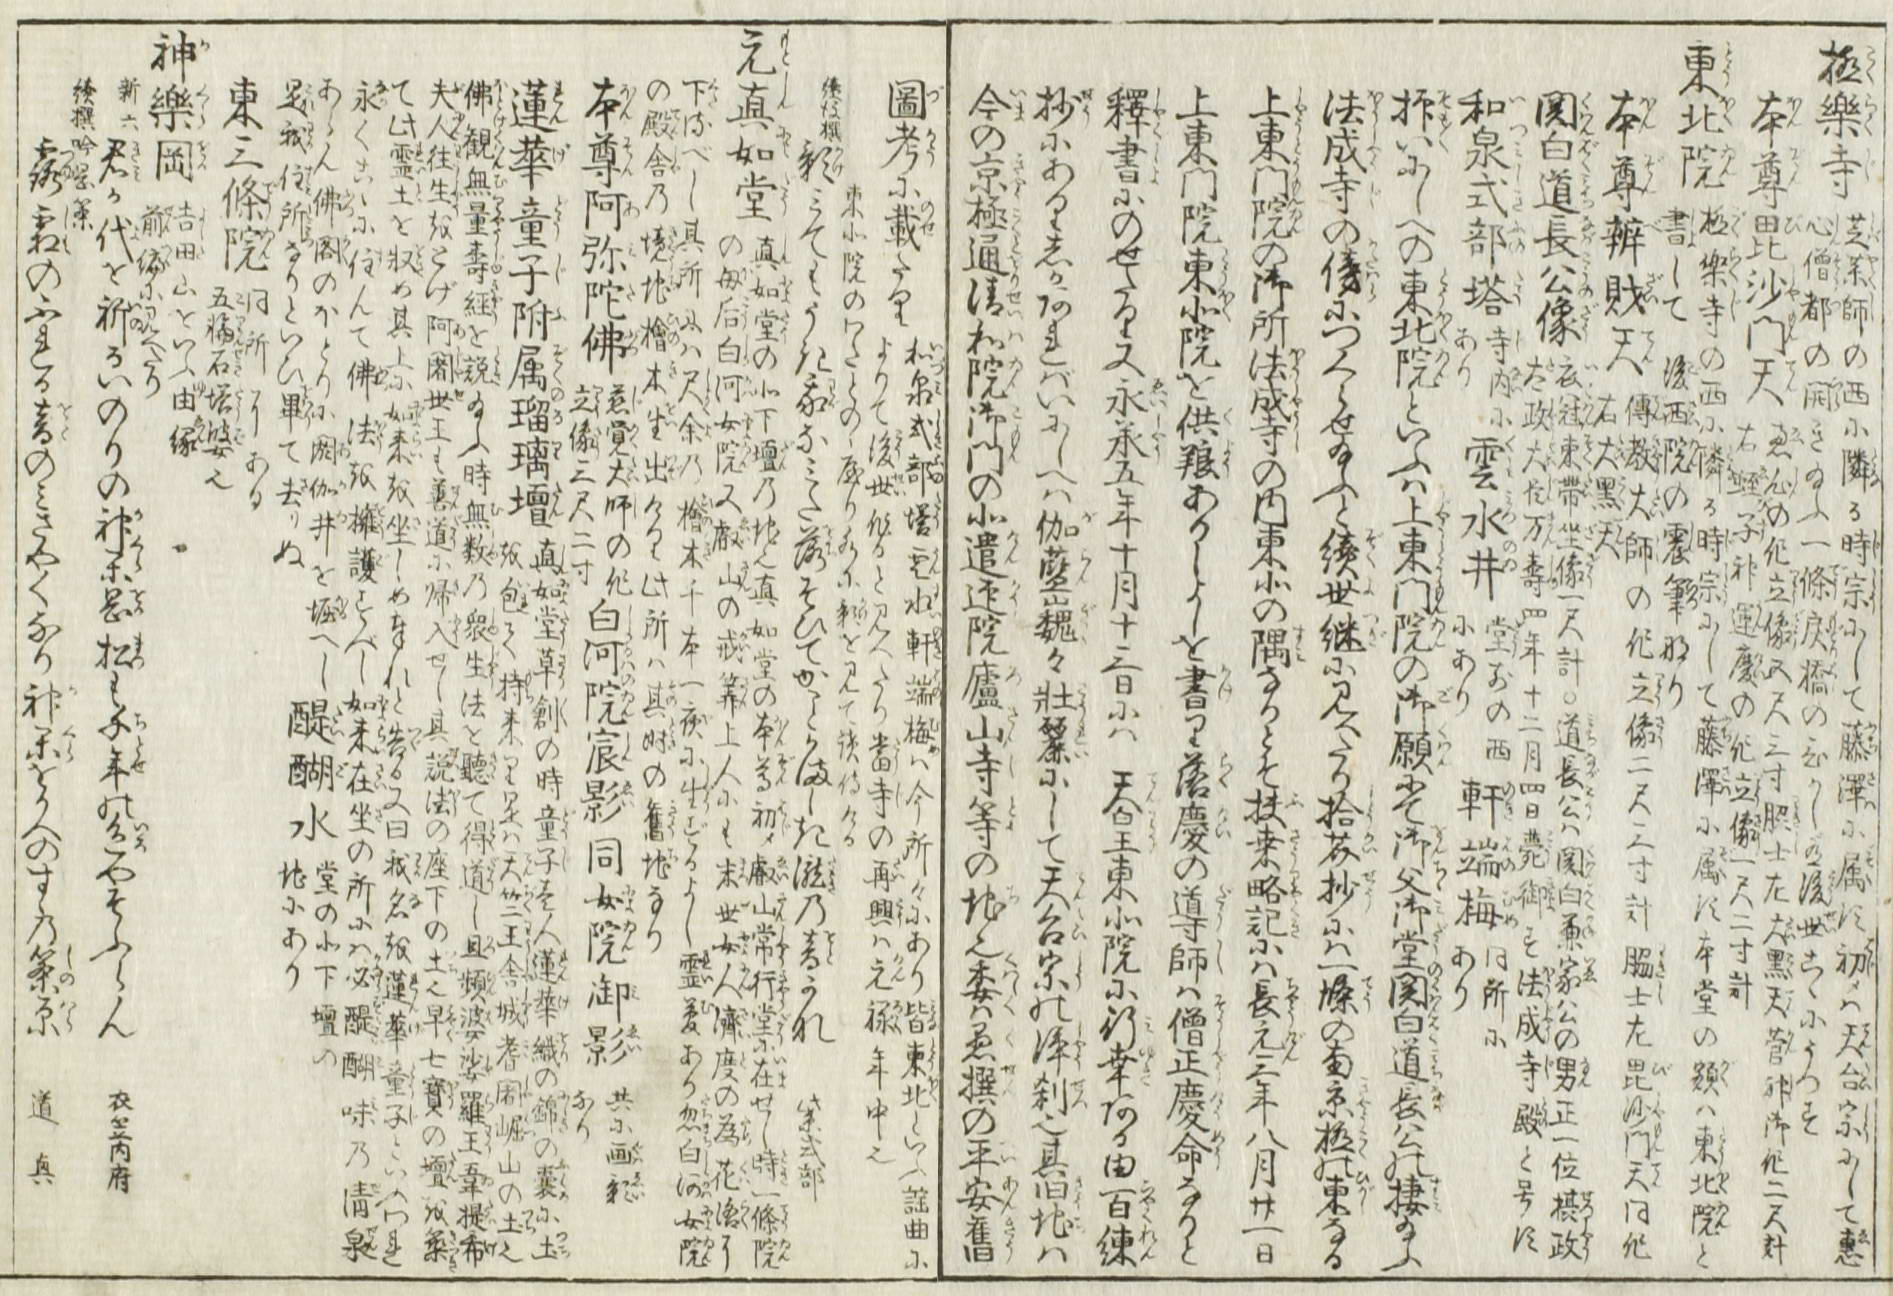 極樂寺 芝藥師の西に隣る時宗にして藤澤に属す初メハ天台宗にして惠
心僧都の開きたまふ一條戻橋のひがしにあり後世こゝにうつす
本尊毘沙門天 惠心の作立像五尺三寸脇士左大黒天菅神御作二尺計
右蛭子神運慶の作立像一尺二寸計
東北院 極樂寺の西に隣る時宗にして藤澤に属す本堂の額ハ東北院と
書して後西院の震筆なり
本尊辨財天 傳教大師の作立像二尺三寸計脇士左毘沙門天同作
右大黒天
関白道長公像 衣冠束帯坐像一尺計○道長公ハ関白兼家公の男正一位摂政
太政大臣万壽四年十二月四日薨御す法成寺殿と号す
和泉式部塔 寺内にあり 雲水井 堂前の西にあり 軒端梅 同所にあり
抑いにしへの東北院といふハ上東門院の御願にて御父御堂関白道長公の棲たまふ
法成寺の傍につくらせたまふと續世継に見へたり拾芥抄にハ一條の南京極の東なる
上東門院の御所法成寺の内東北の隅なりとぞ扶桒略記にハ長元三年八月廿一日
上東門院東北院を供養ありしよしを書り落慶の導師ハ僧正慶命なりと
釋書にのせたり又永承五年十月十三日にハ 天皇東北院に行幸ある由百練
抄にあり志かあれバいにしへハ伽藍巍々壮麗にして天台宗の淨刹也其旧地ハ
今の京極通清和院御門の北遣迎院廬山寺等の地也委ハ愚撰の平安舊
圖考に載たり 和泉式部塔雲水軒端梅ハ今所々にあり皆東北といふ謡曲に
よりて後世作ると見へたり當寺の再興ハ元禄年中也
東北院のわたどのゝやり水に影を見て読侍ける
後拾撰 影みてもうき我なみだ落そひてかごとがましき瀧乃音かな 紫式部
元真如堂 真如堂の北下壇乃地也真如堂の本尊初メ叡山常行堂に在せし時一條院
の母后白河女院又叡山の戒算上人にも末世女人濟度の為花洛に
下すべし其所にハ尺余乃檜木千本一夜に生ずるよし霊夢あり忽白河女院
の殿舎乃境地檜木生出けるも此所ハ其時の舊地なり
本尊阿弥陀佛 慈覚大師の作立像三尺二寸 白河院宸影 同女院御影 共に画影なり
蓮華童子附属瑠璃壇 真如堂草創の時童子壱人蓮華織の錦の嚢に土
を包て持来り是ハ天竺王舎城耆闍崛山の土也
佛観無量壽經を説たまふ時無数乃衆生法を聴て得道し且頻婆娑羅王韋提希
夫人往生をとげ阿闍世王も善道に帰入せし其説法の座下の土也早七寳の壇を築
て此霊土を収め其上に如来を坐しめなれと告る又曰我名を蓮華童子といひつれ
永くこゝに住んて佛法を擁護すべし如来在坐の所にハ必醍醐味乃清泉
あらん佛閣のかたりに閼伽井を堀へし 醍醐水 堂の北下壇の地にあり
是我住所なりといひ畢て去りぬ
東三條院 同所にある五輪石塔婆也
神樂岡 吉田山といふ由縁前編に見へたり
新六 君か代を祈るいのりの神楽岡松も千年の色やそふらん 衣笠内府
續撰吟集 霧霜のふれる音のミさやくなり神楽をかへのすゝ乃篠原 道真